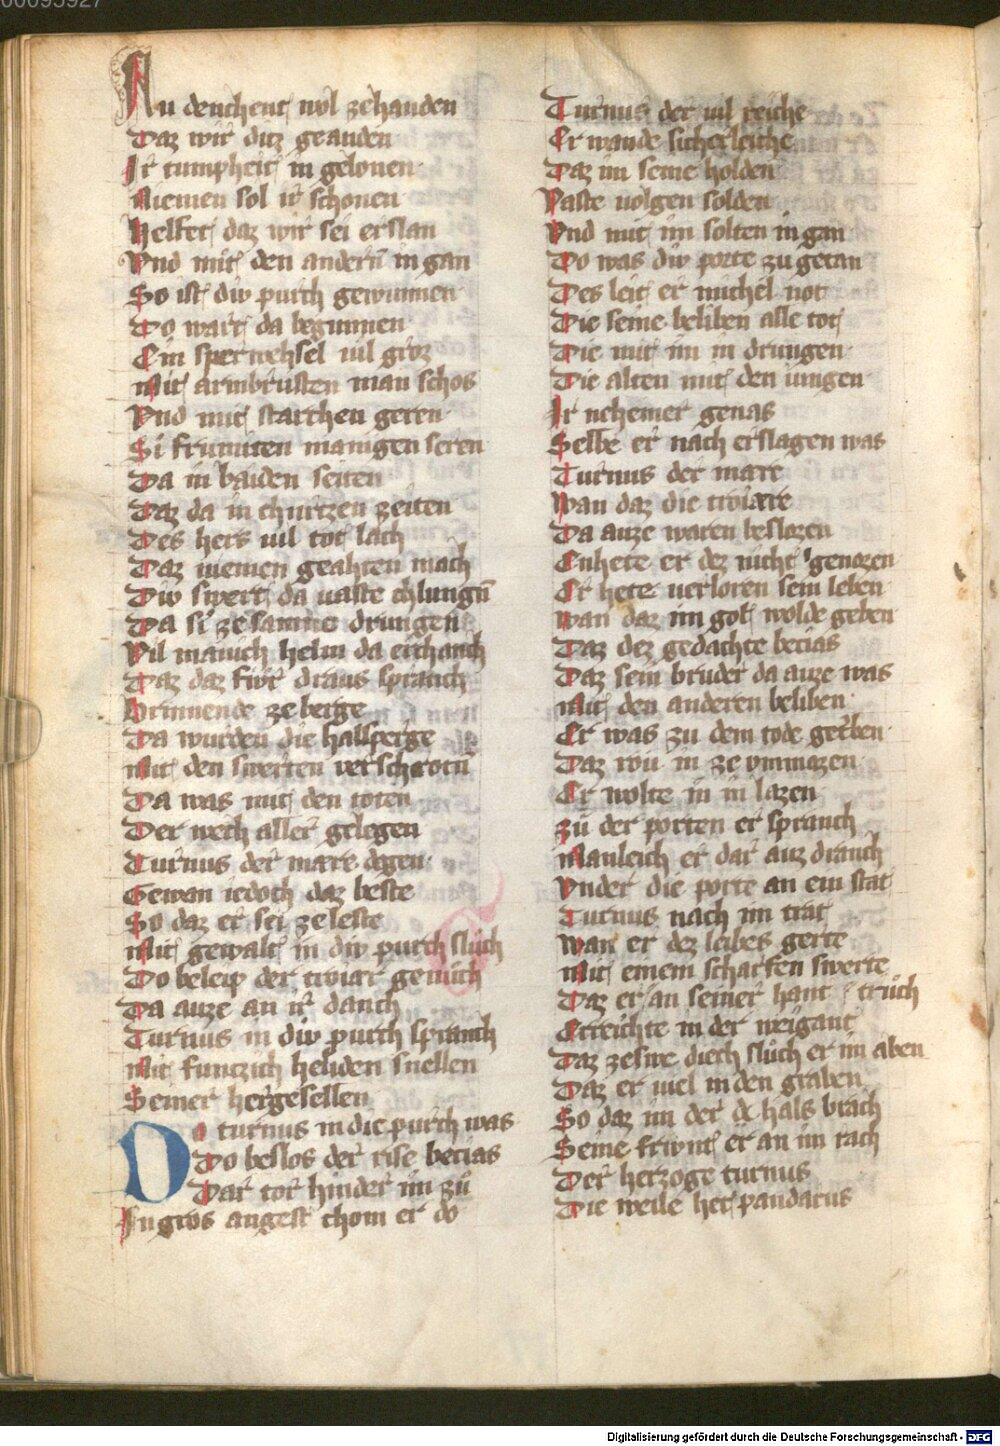 00095927
Nu denchent wol ze handen
Daz wir ditz geanden
Ir tumpheit in gelonen
Niemen sol ir schonen
Helfet daz wir sei erslan
Vnd mit den andern̄ in gan
So ist div purch gewunnen
Do wart da begunnen
Ein sperwehsel uil groz
Mit armbrusten man schos
Vnd mit starchen geren
Si frumten manigen seren
Da in baiden seiten
Daz da in churtzen zeiten
Des hers uil tot lach
Daz niemen geahten mach
Div swert da uaste chlungn̄
Da si ze samne drungen
Vil manich helm da erchanch
Daz daz fivr draus spranch
Brinnende ze berge
Da wurden die hallsperge
Mit den swerten verschrotn̄
Da was mit den toten
Der wech aller gelegen
Turnus der mare degen
Gewan iedoch daz beste
So daz er sei ze leste
Mit gewalt in div purch sluch
Do beleip der troiar genuch
Da auze an ir danch
Turnus in div purch spranch
Mit funczich heliden snellen
Seiner hergesellen
Do turnus in die purch was
Do beslos der rise becias
Daz tor hinder im zu
In gros angest chom er do
Turnus der uil reiche
Er wande sicherleiche
Daz im seine holden
Vaste uolgen solden
Vnd mit im solten in gan
Do was div porte zu getan
Des leit er michel not
Die seine beliben alle tot
Die mit im in drungen
Die alten mit den iungen
Ir nehemer genas
Selbe er nach erslagen was
Turnus der mare
Wan daz die troiare
Da auze waren beslozen
Enhete er dez nicht genozen
Er hete uerloren sein leben
Wan daz im got wolde geben
Daz dez gedachte becias
Daz sein bruder da auze was
Mit den anderen beliben
Er was zu dem tode getben
Daz rou in ze vnmazen
Er wolte in in lazen
Zu der porten er spranch
Manleich er dar auz dranch
Vnder die porte an ein stat
Turnus nach im trat
Wan er dez leibes gerte
Mit einem scharfen swerte
Daz er an seiner hant truch
Erreichte in der weigant
Daz zeswe diech sluch er im aben
Daz er viel in den graben
So daz im der de hals brach
Seine friwnt er an im rach
Der herzoge turnus
Die weile her pandarus
Digitalisierung gefördert durch die Deutsche Forschungsgemeinschaft - DFG